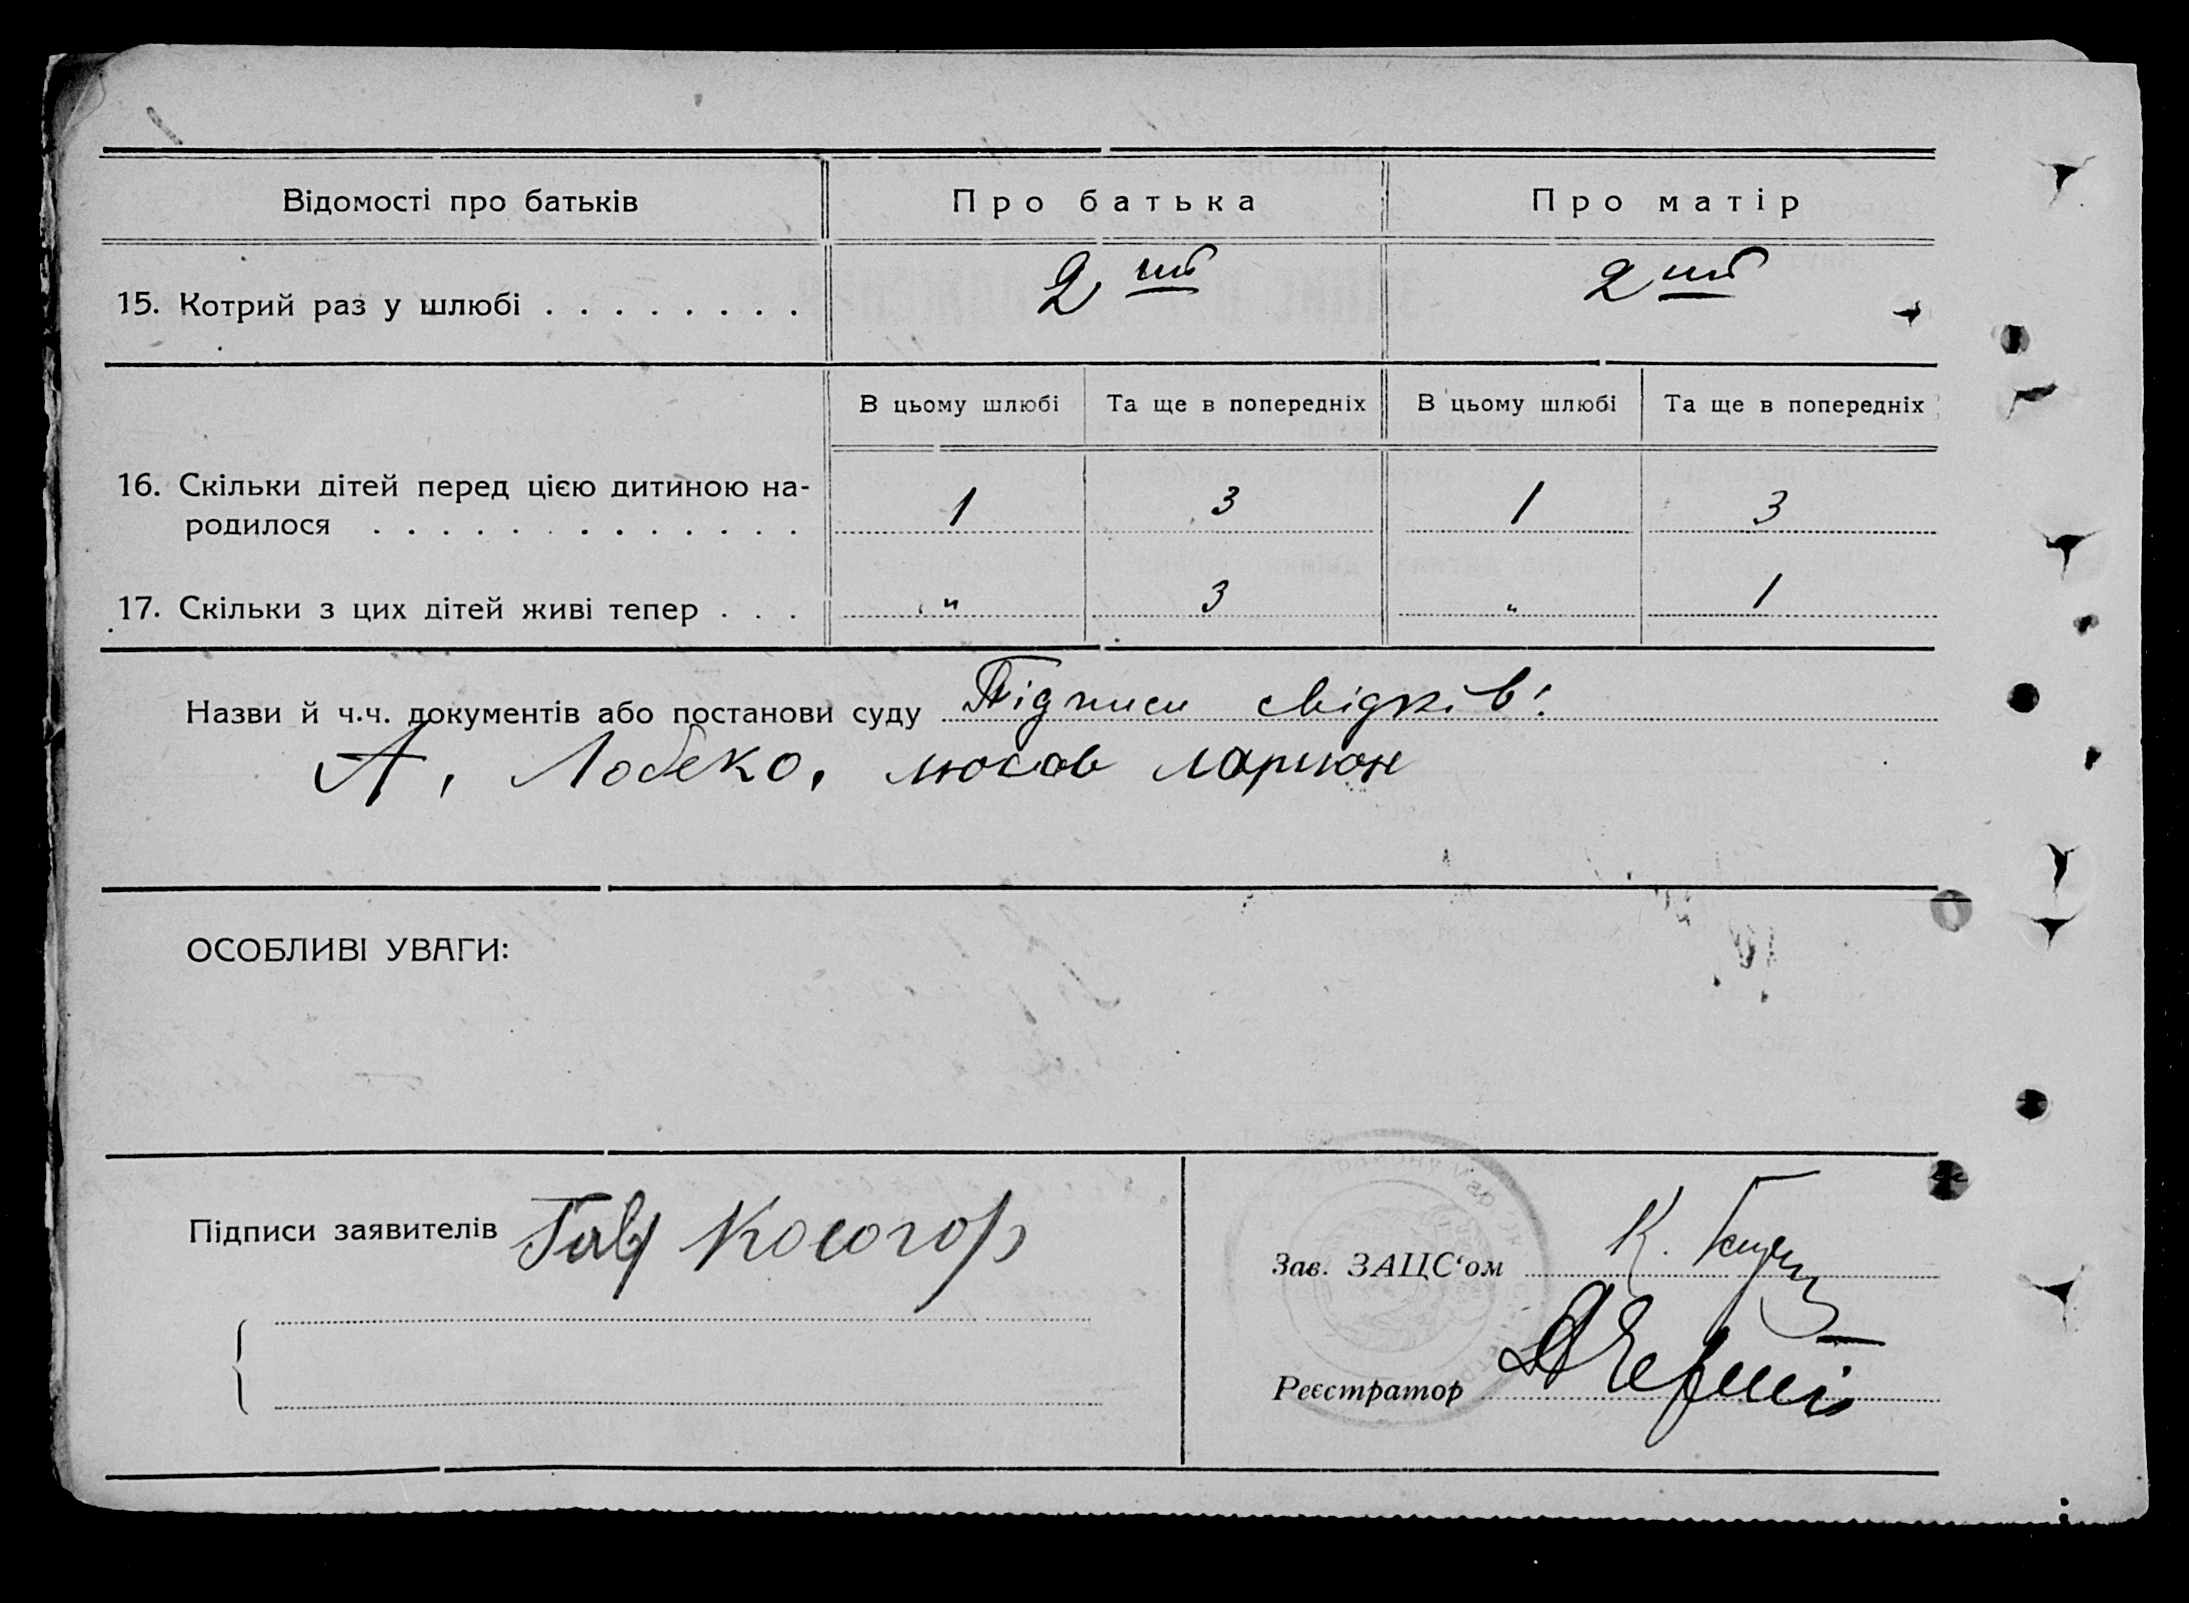 Відомості про батьків Про батька Про матір
15. Котрий раз у шлюбі . . . . . . . . 2 ий 2 ий
В цьому шлюбі Та ще в попередніх В цьому шлюбі Та ще в попередніх
16. Скільки дітей перед цією дитиною на-
родилося . . . . . . . . . . . . . 1 3 1 3
17. Скільки з цих дітей живі тепер . . . " 3 " 1
Назви й ч.ч. документів або постанови суду Підписи свідків:
А, Лобеко, ларион
ОСОБЛИВІ УВАГИ:
Підписи заявителів Косогор
Зав. ЗАЦС‘ом К.
Реєстратор